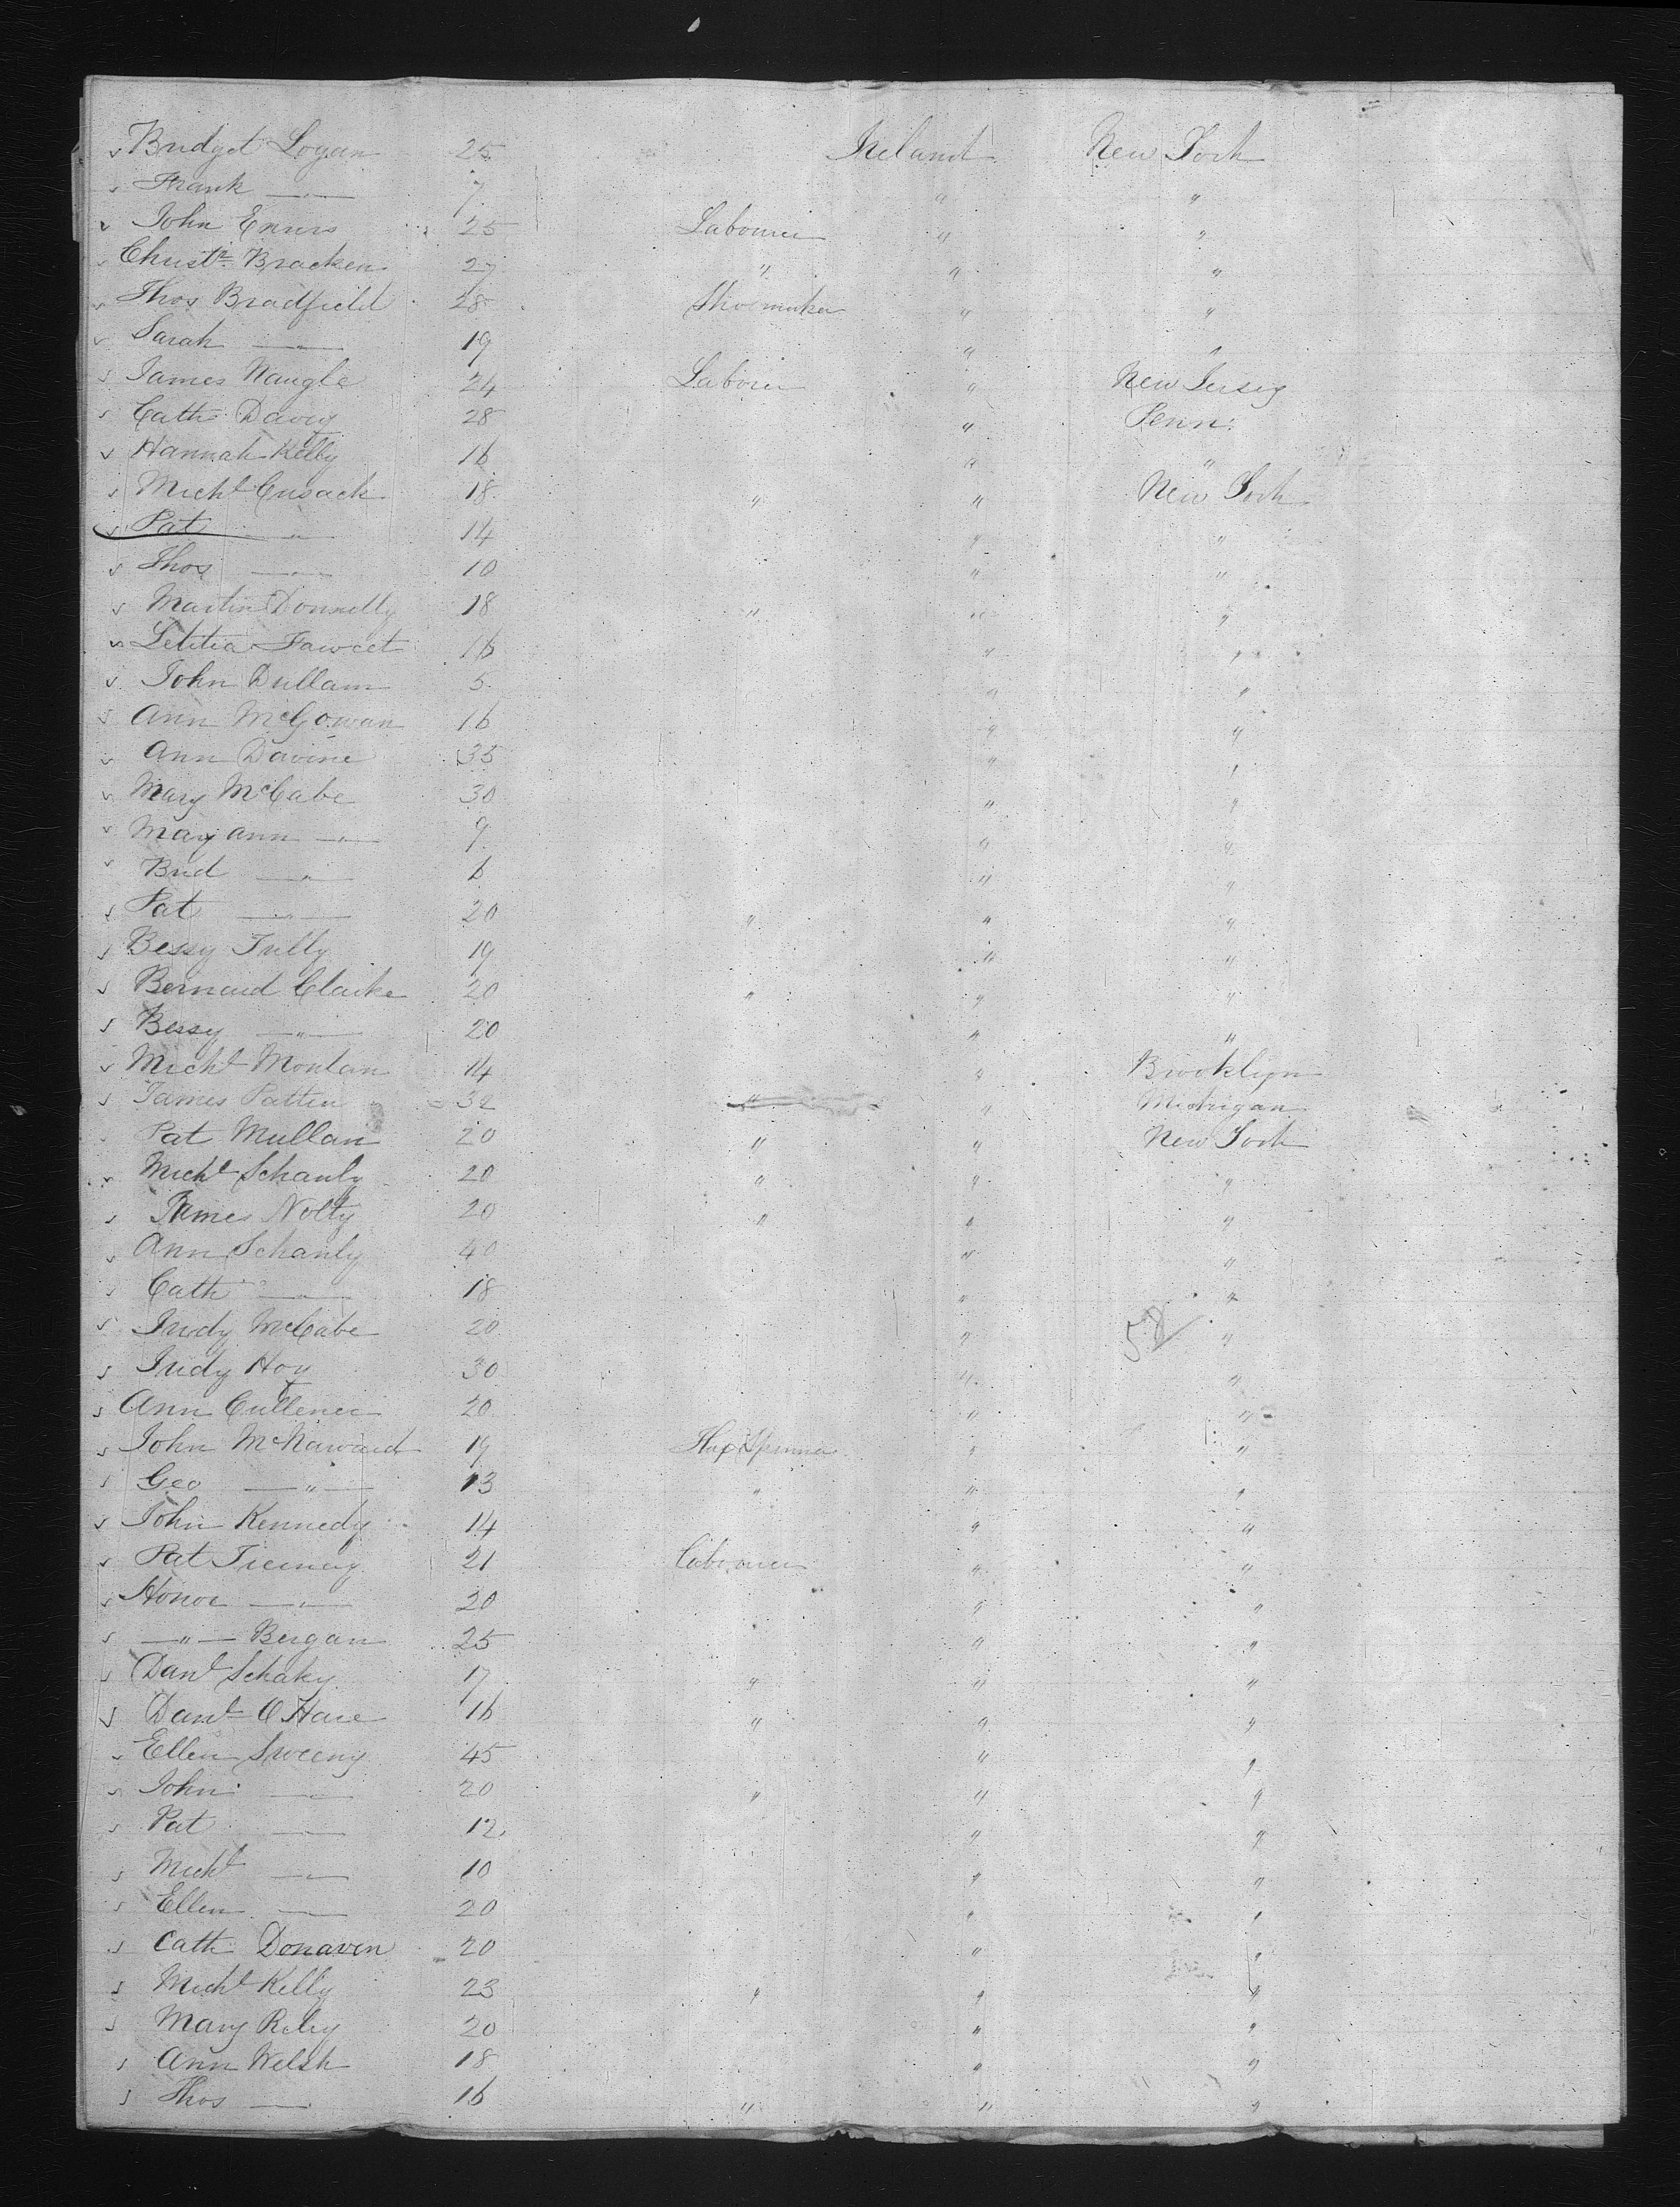 Bridget Logan 25 Ireland New York
Frank —"— 7 " "
John Ennis 25 Labourer " "
Christr. Bracken 27 " " "
Thos Bradfield 28 Shoemaker " "
Sarah —"— 19 " "
James Naugle 24 Laborer " New Jersey
Cath Davey 28 " Penn:
Hannah Kelly 16 " "
Michl Cusack 18 " " New York
Pat —"— 14 " "
Thos —"— 10 " "
Martin Donnelly 18 " " "
Letitia Fawcet 16 " "
John Dullam 5 " "
Ann McGowan 16 " "
Ann Davine 35 " "
Mary McCabe 30 " "
Mary Ann —"— 9 " "
Brid —"— 6 " "
Pat —"— 20 " " "
Bessy Tully 19 " "
Bernard Clarke 20 " " "
Bessy —"— 20 " "
Michl Montan 14 " Brooklyn
James Patten 32 " " Michigan
Pat Mullan 20 " " New York
Michl Schanly 20 " " "
James Nolty 20 " " "
Ann Schanly 40 " "
Cath —"— 18 " "
Judy McCabe 20 " 58 "
Judy Hoy 30 " "
Ann Cullener 20 " "
John McNaward 19 Flax Spinner " "
Geo —"— 13 " " "
John Kennedy 14 " "
Pat Tierney 21 Labourer " "
Honor —"— 20 " "
—"— Bergan 25 " "
Danl Schaky 17 " " "
Danl O Hare 16 " " "
Ellen Sweeny 45 " "
John —"— 20 " " "
Pat —"— 12 " "
Michl —"— 10 " "
Ellen —"— 20 " "
Cath Donaven 20 " "
Michl Kelly 23 " " "
Mary Reley 20 " "
Ann Welsh 18 " "
Thos — 16 " " "